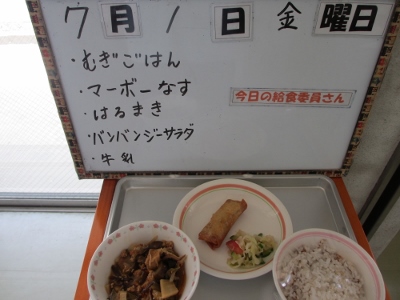 7月1日金曜日
・むぎごはん
・マーボーなす
今日の給食委員さん
・はるまき
・バンバンジーサラダ
・牛乳